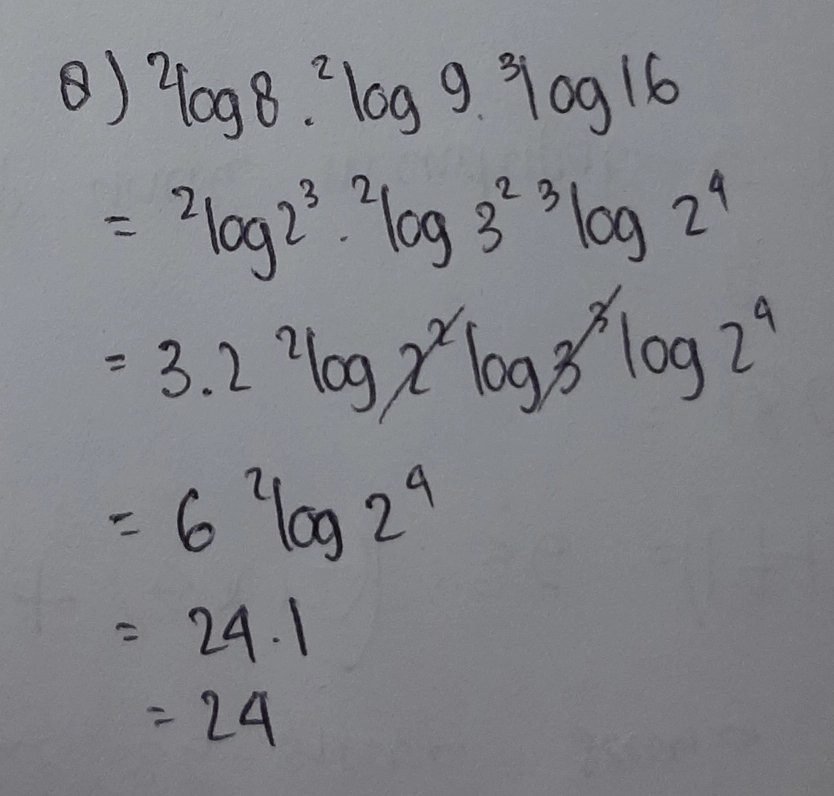 a) ²log 8 . ²log 9 . ³log 16
= ²log 2³ . ²log 3² ³log 2⁴
= 3.2 ²log 2 ²log 3 ³log 2⁴
= 6 ²log 2⁴
= 24.1
= 24